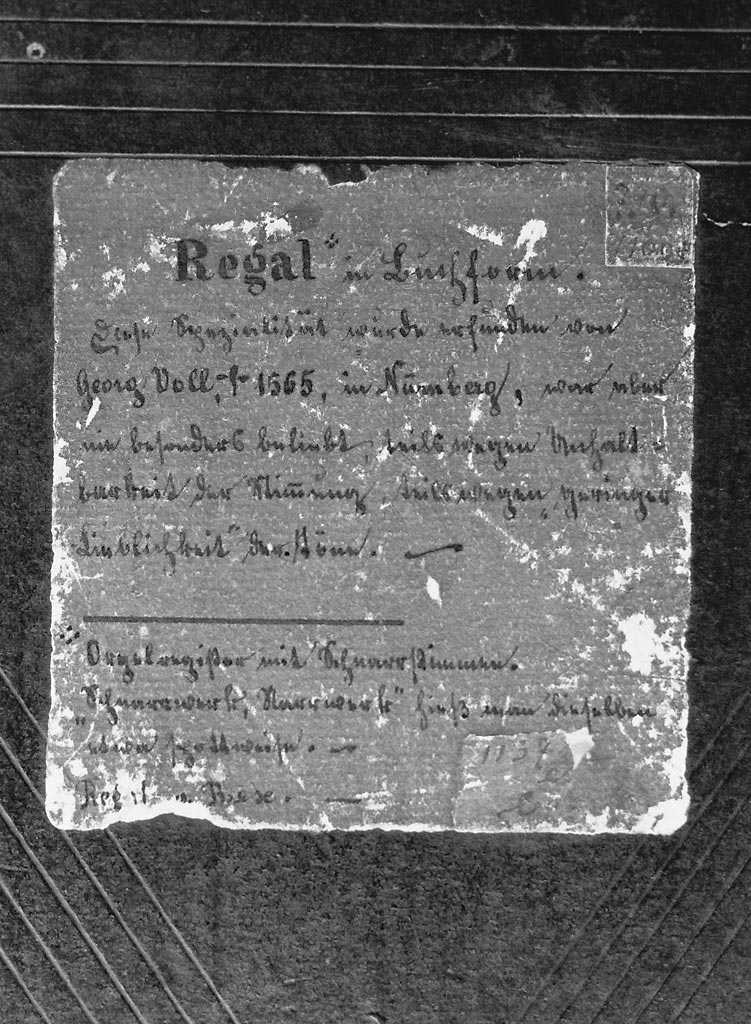 Regal in Buchform.
Diese Spezialität wurde erfunden von
Georg Voll, † 1565, in Nürnberg, war aber
nie besonders beliebt, teils wegen Unhalt-
barkeit der Stimmung, teils wegen „geringer
Lieblichkeit" der Töne.
Orgelregister mit Schnarrstimmen.
„Schnarrwerk, Narrwerk" hieß man dieselben
etwa spottweise.
1137